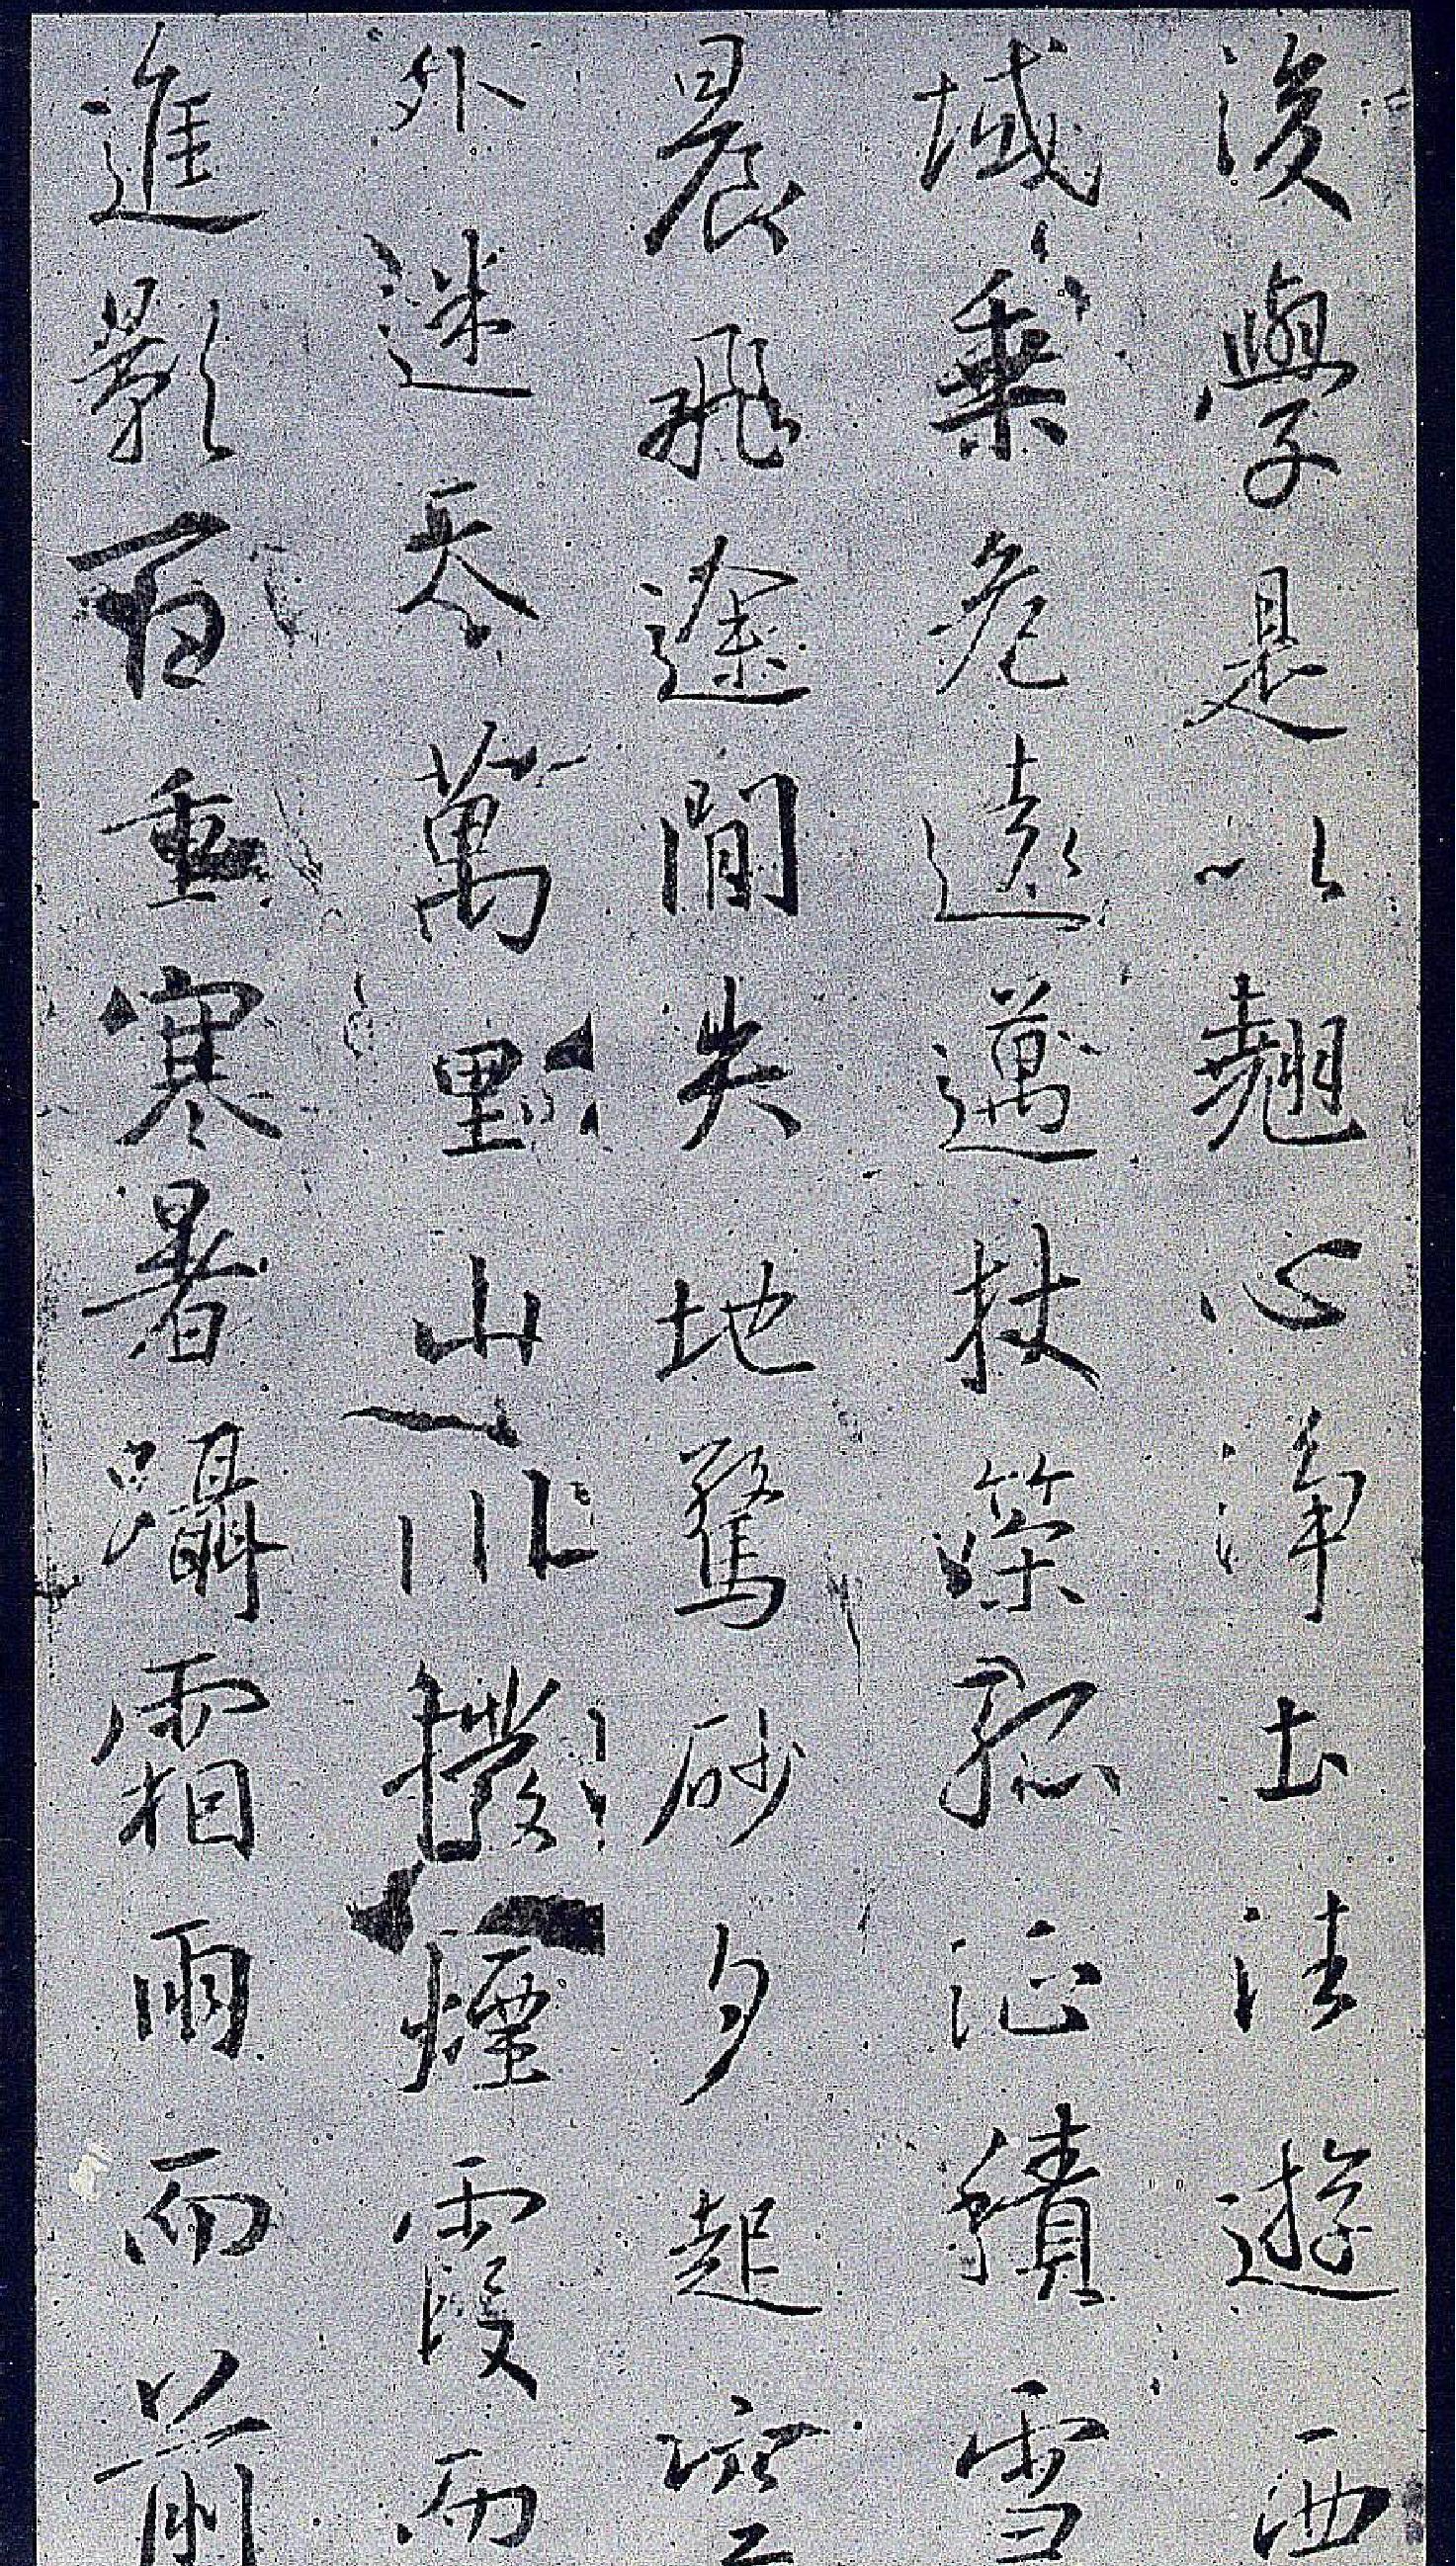 後學是以翹心淨土法遊西
域乘危遠邁杖策孤征積雪
晨飛途間失地驚砂夕起空
外迷天萬里山川撥煙霞而
進影百重寒暑躡霜雨而前